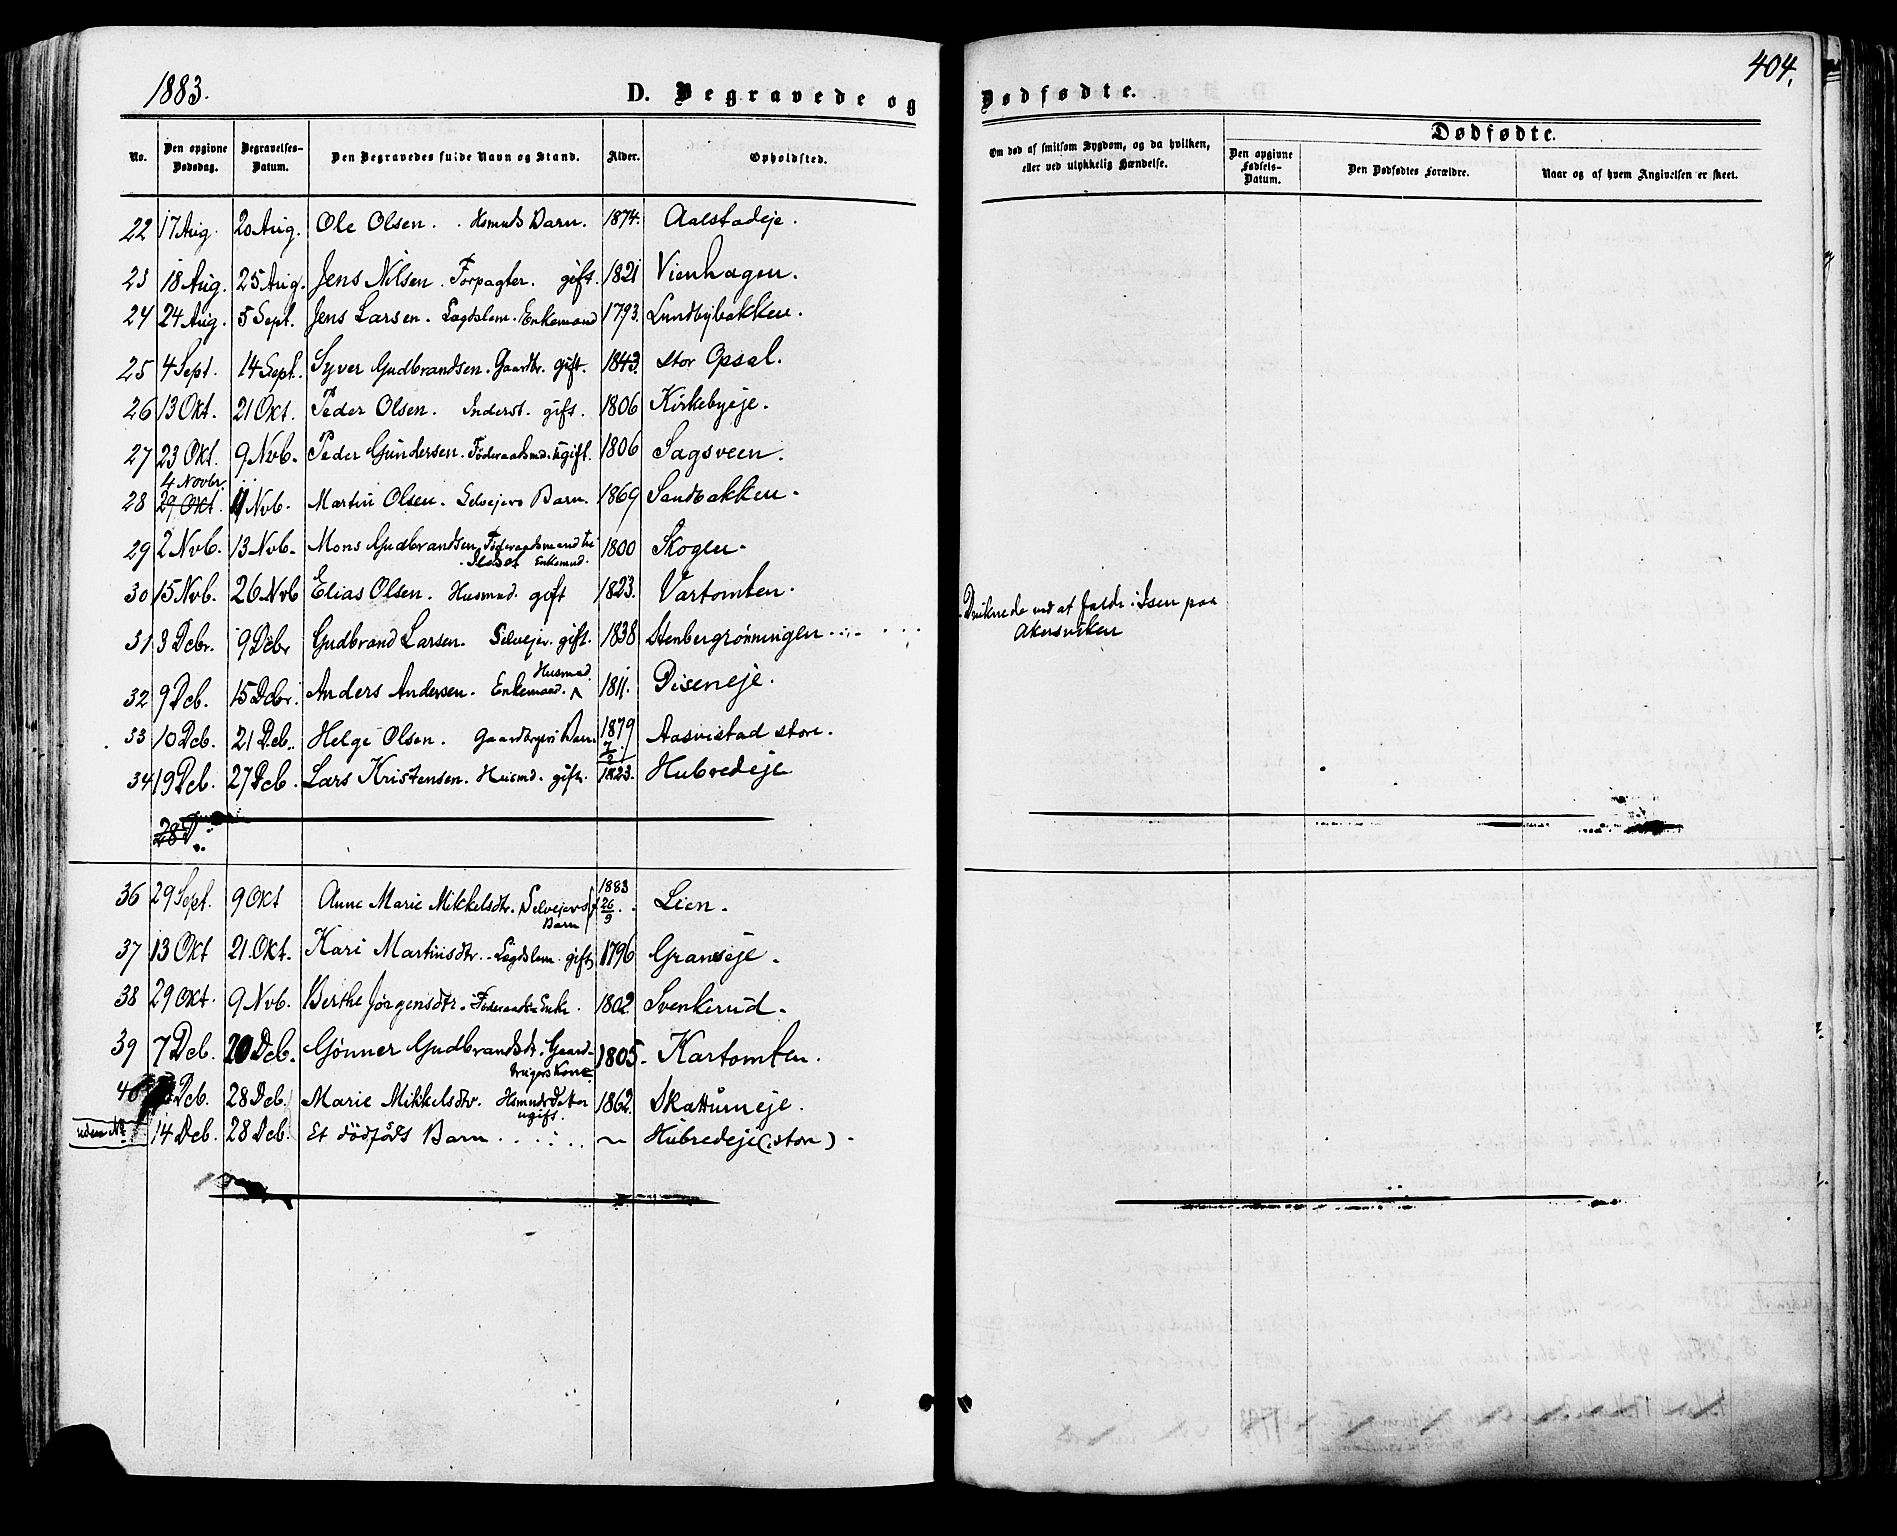 1883.
404.
D. Begravede og Dødfødte.
No. Den opgivne Dødsdag. Begravelses-Datum. Den Begravedes fulde Navn og Stand. Alder. Opholdsted. Om død af smitsom Sygdom, og da hvilken, eller ved ulykkelig Hændelse.
Dødfødte.
Den opgivne Fødsels-Datum. Den Dødfødtes Forældre. Naar og af hvem Angivelsen er skeet.
22 17 Aug. 20 Aug. Ole Olsen. Hsmnds Barn. 1874. Aalstadeje.
23 18 Aug. 25 Aug. Jens Nilsen. Forpagter. gift. 1821 Vienhagen.
24 24 Aug. 5 Sept. Jens Larsen. Lægdslem. Enkemand 1793. Lundbybakken.
25 4 Sept. 14 Sept. Syver Gudbrandsen. Gaardbr. gift. 1843. Stor Opsal.
26 13 Okt. 21 Okt. Peder Olsen. Inderst. gift. 1806 Kirkebyeje.
27 23 Okt. 9 Nvb. Peder Gundersen. Føderaadsmd. ugift. 1806 Sagsveen.
4 Novbr.
28 29 Okt. 11 Nvb. Martin Olsen. Selvejers Barn. 1869 Sandbakken.
29 2 Nvb. 13 Nvb. Mons Gudbrandsen Føderaadsmand 1800 Skogen.
Enkemnd.
30 15 Nvb. 26 Nvb Elias Olsen. Husmnd. gift 1823. Vartomten.
31 3 Debr. 9 Debr Gudbrand Larsen. Selvejer. gift. 1838 Stenbergrønningen Druknede ved at falde i Isen paa
Akersviken
Husmnd.
32 9 Deb. 15 Debr. Anders Andersen. Enkemand. 1811. Diseneje.
33 10 Deb. 21 Deb. Helge Olsen. Gaardbrgers Barn 1879 7/2. Aasvistad store.
34 19 Deb. 27 Deb. Lars Kristensen. Husmd. gift. 1823. Hubredeje
28 D.
36 29 Sept. 9 Okt Anne Marie Mikkelsdtr. Selvejers Barn 1883 26/9 Lien.
37 13 Okt 21. Okt. Kari Martinsdtr. Lægdslem. gift 1796 Granseje.
38 29 Okt. 9 Nvb. Berthe Jørgensdtr. Føderaads-Enke. 1802 Svenkerud.
39 7 Deb. 20 Deb. Gønner Gudbrandsdtr. Gaardbrugers Kone 1805. Kartomten.
40 Deb. 28 Deb. Marie Mikkelsdtr. Hsmnds Datter ugift. 1862. Skattumeje.
uden No. 14 Deb. 28 Deb. Et dødfødt Barn ~ Hubredeje (store).